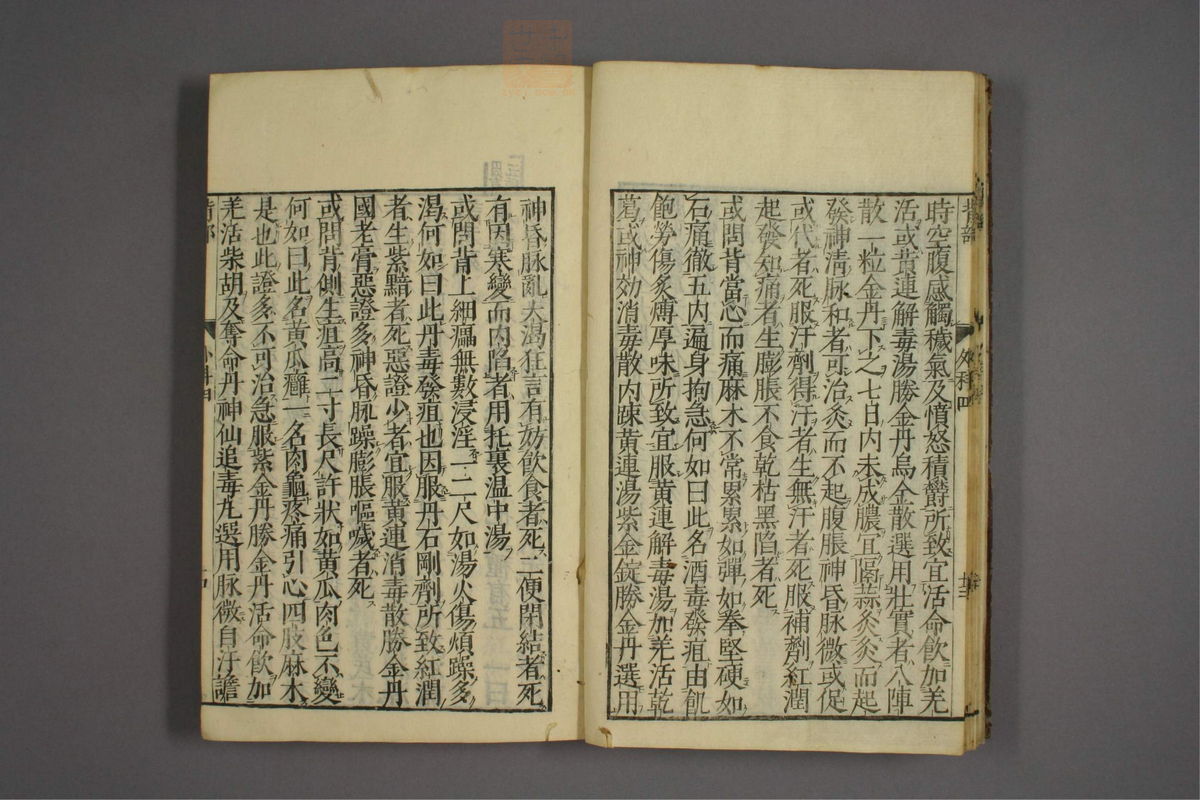 時空腹感觸穢氣及憤怒積欝所致宜活命飲加羌
活或黃連解毒湯勝金丹烏金散選用壯實者八陣
散一粒金丹下之七日內未成膿宜隔蒜灸灸而起
發神清脉和者可治灸而不起腹脹神昏脉微或促
或代者死服汗劑得汗者生無汗者死服補劑紅潤
起發知痛者生膨脹不食乾枯黑陷者死
或問背當心而痛麻木不常累累如彈如拳堅硬如
石痛徹五内遍身拘急何如曰此名酒毒發疽由飢
飽勞傷炙煿厚味所致宜服黃連解毒湯加羌活乾
葛或神効消毒散内踈黃連湯紫金錠勝金丹選用
背部
外科四
神昏脉亂大渴狂言有妨飲食者死二便閉結者死
有因寒變而内陷者用托裏温中湯
或問背上細癗無數浸淫一二尺如湯火傷煩躁多
渴何如曰此丹毒發疽也因服丹石剛劑所致紅潤
者生紫黯者死惡證少者宜服黃連消毒散勝金丹
國老膏惡證多神昏脉躁膨脹嘔噦者死
或問背側生疽高二寸長尺許狀如黃瓜肉色不變
何如曰此名黃瓜癰一名肉龜疼痛引心四肢麻木
是也此證多不可治急服紫金丹勝金丹活命飲加
羌活柴胡及奪命丹神仙追毒丸選用脉微自汗譫